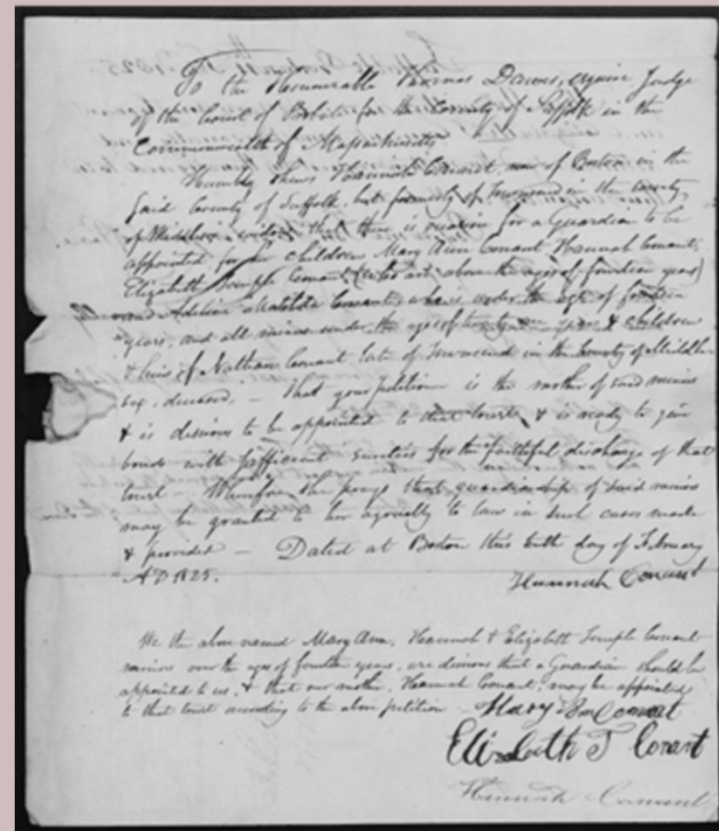 To the Honourable Thomas Dawes, esquire Judge
of the Court of Probate for the County of Suffolk in the
Commonwealth of Massachusetts.
Humbly shews Hannah Conant, now of Boston in the
said County of Suffolk, but formerly of Townsend in the County
of Middlesex widow that there is occasion for a Guardian to be
appointed for her children Mary Ann Conant Hannah Conant,
Elizabeth Temple Conant (who are above the age of fourteen years)
and Adeline Matilda Conant, who is under the age of fourteen
years, and all minors under the age of twenty one years & children
& heirs of Nathan Conant late of Townsend in the County of Middle
sex, deceased. – That your petitioner is the mother of said minors
& is desirous to be appointed to that trust, & is ready to give
bonds with sufficient sureties for the faithful discharge of that
trust – Wherefore she prays that guardianship of said minors
may be granted to her agreeably to law in such cases made
& provided – Dated at Boston this tenth day of February
A D 1825.
Hannah Conant
We the above named Mary Ann, Hannah & Elizabeth Temple Conant
minors over the ages of fourteen years, are desirous that a Guardian should be
appointed to us, & that our mother, Hannah Conant, may be appointed
to that trust according to the above petition
Mary Ann Conant
Elizabeth T Conant
Hannah Conant